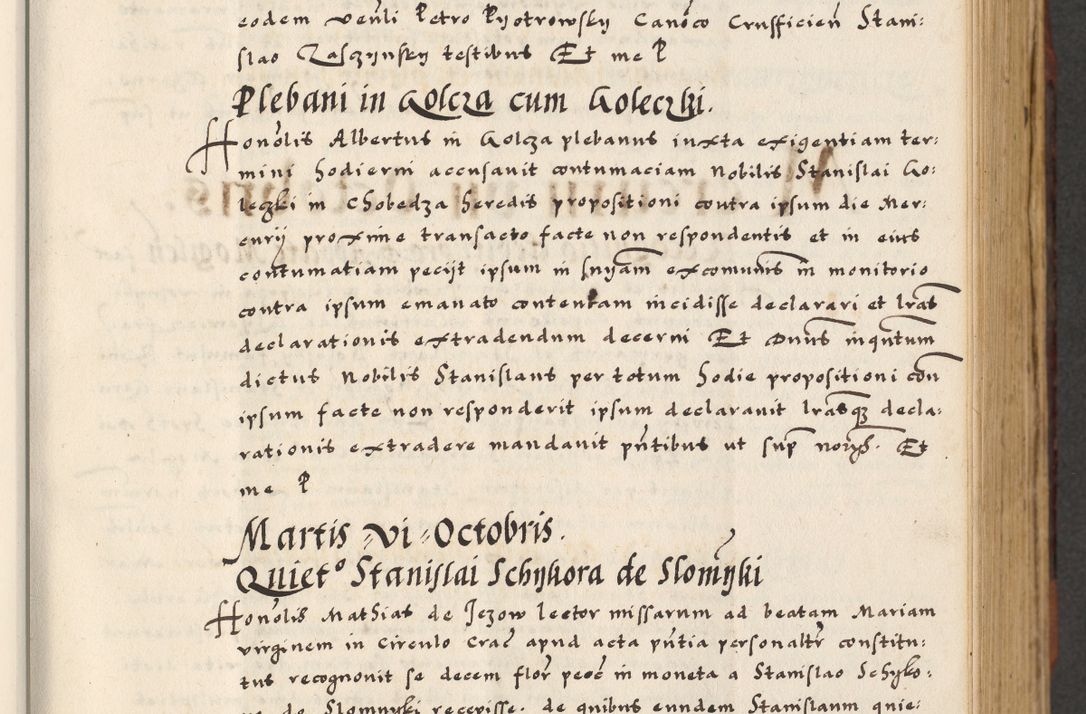 eodem venli Petro Pyotrowsky Canoco Crusficien Stani:
slao Zasczynsky testibus Et me P
Plebani in Golcza cum Goleczki.
Honolis Albertus in Golcza plebanus iuxta exigentiam ter:
mini hodierni accusavit contumaciam Nobilis Stanislai Go:
leczki in Chobedza heredis propositioni contra ipsum die Mer:
curij proxime transacto facte non respondentis et in eius
contumatiam pecijt ipsum in snyam excomunis in monitorio
contra ipsum emanato contentam incidisse declarari et lras
declarationis extradendum decerni Et Dnus inquntum
dictus Nobilis Stanislaus per totum hodie propositioni con
ipsum facte non responderit ipsum declaravit lrasque decla:
rationis extradere mandavit pntibus ut sup noris. Et
me P
Martis vi Octobris.
Quieto Stanislai Schykora de Slomnyki
Honolis Mathias de Jezow lector missarum ad beatam Mariam
virginem in Circulo Crac apud acta pntia personaltr constitu:
tus recognovit se decem flor pecc in moneta a Stanislao Schyko:
de Slomnyki recepisse. de quibus eundem Stanislaum quie: